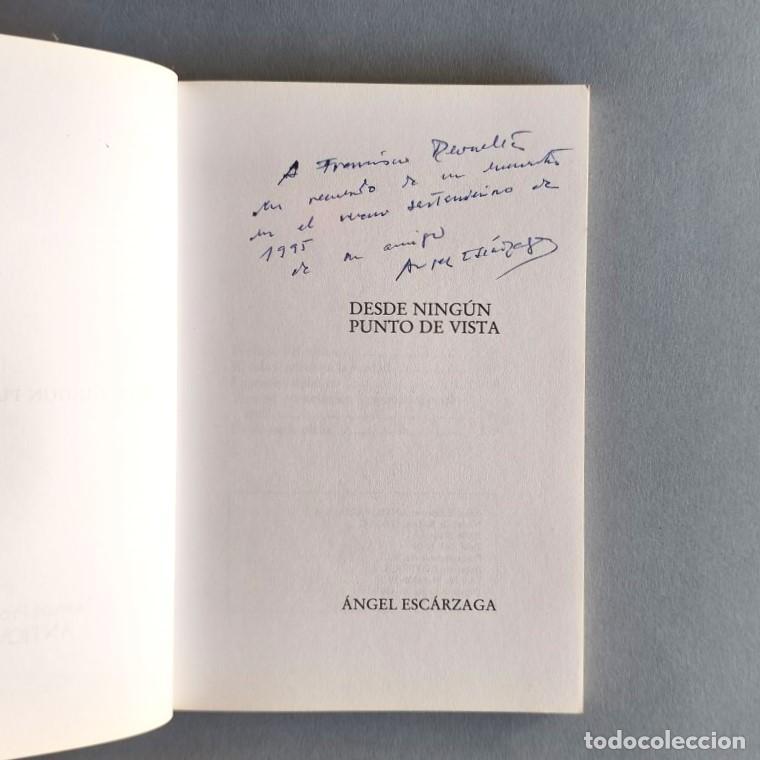 A Francisco Revuelta
en recuerdo de un encuentro
en el verano santanderino de
1995
de su amigo Angel Escárzaga
DESDE NINGÚN
PUNTO DE VISTA
ÁNGEL ESCÁRZAGA
todocoleccion